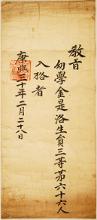 敎旨
幼學金是洛生員三等第六十六人
入格者
康熙三十年二月二十八日